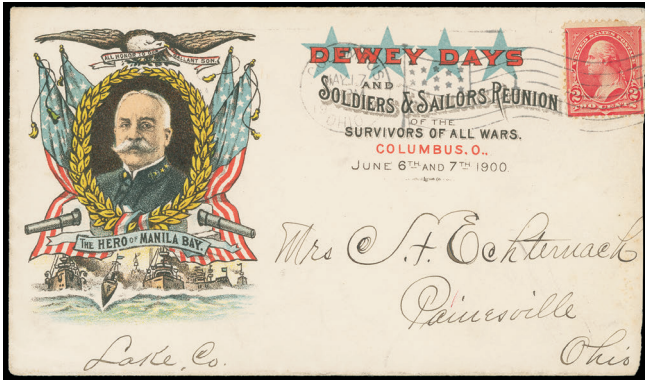 ALL HONOR TO OUR GALLANT SON.
THE HERO OF MANILA BAY.
DEWEY DAYS
AND
SOLDIERS & SAILORS REUNION
OF THE
SURVIVORS OF ALL WARS.
COLUMBUS. O..
JUNE 6TH AND 7TH 1900
OHIO
TWO CENTS
Mrs S. F. Echternach
Painesville
Ohio
Lake, Co.